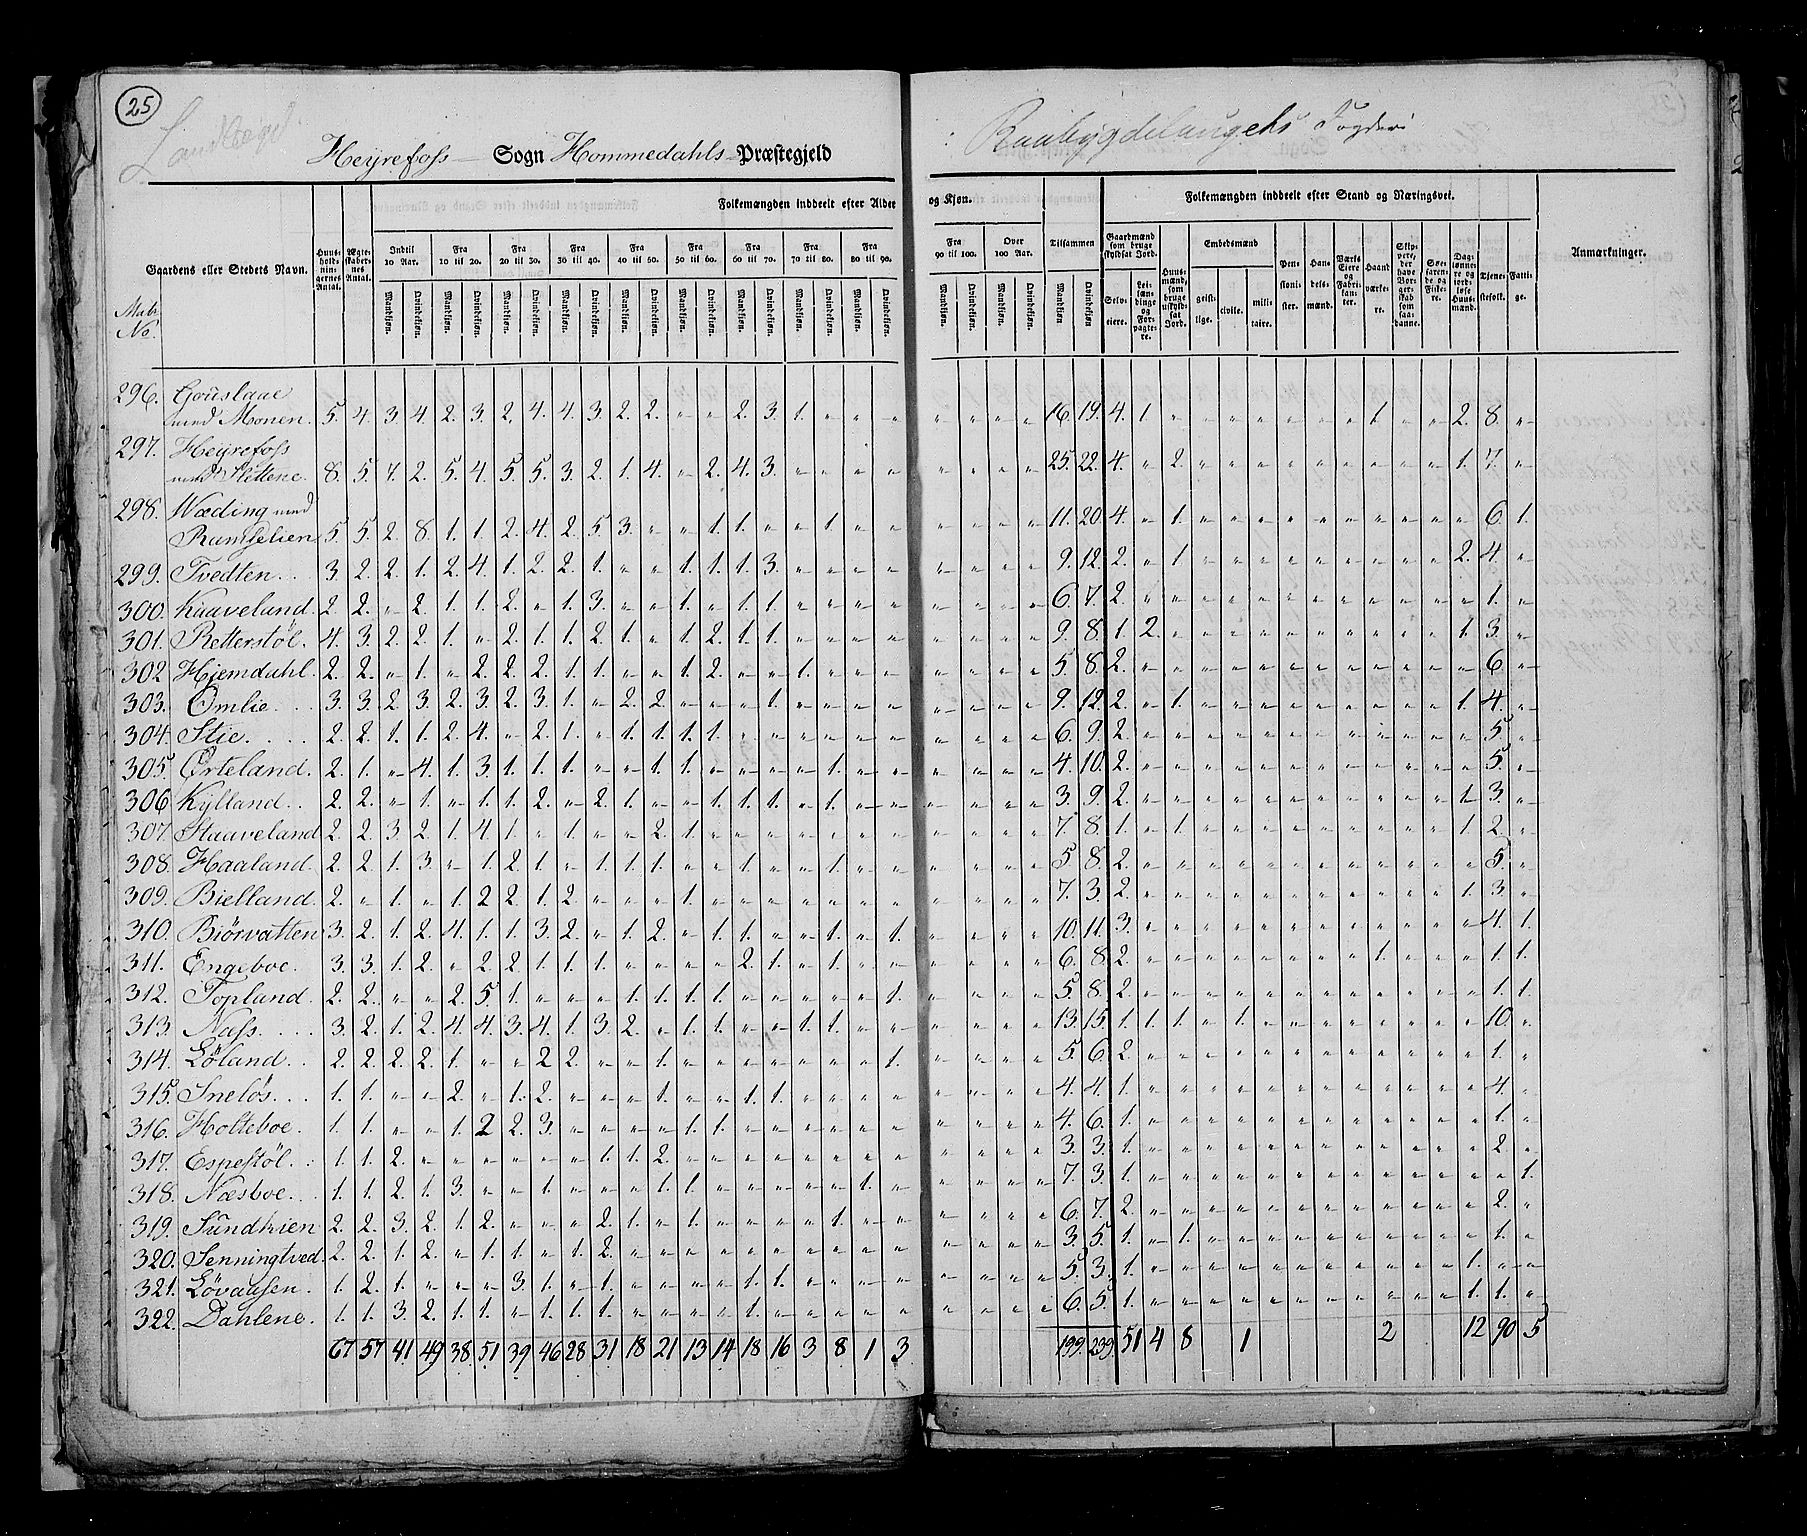 25
Landsogn
Heyrefoss Sogn Hommedahls Præstegjeld
Raabygdelaugets Fogderi
Folkemængden inddeelt efter Alder og Kjøn.
Folkemængden inddeelt efter Stand og Næringsvei.
Matr. No.
Gaardens eller Stedets Navn.
Huusholdningernes Antal.
Ægteskabernes Antal.
Indtil 10 Aar.
Fra 10 til 20.
Fra 20 til 30.
Fra 30 til 40.
Fra 40 til 50.
Fra 50 til 60.
Fra 60 til 70.
Fra 70 til 80.
Fra 80 til 90.
Fra 90 til 100.
Over 100 Aar.
Tilsammen
Mandkjøn. Qvindekjøn.
Gaardmænd som bruge skyldsat Jord.
Selveiere.
Leilændinge og Forpagtere.
Huusmænd, som bruge uskyldsat Jord.
Embedsmænd
geistlige.
civile.
militaire.
Pensionister.
Handelsmænd.
Værks Eiere og Fabrikanter.
Haandværkere.
Skippere, der have Borgerskab som saadanne.
Søefarende og Fiskere.
Daglønnere og jordløse Huusmænd.
Tjenestefolk.
Fattige.
Anmærkninger.
296. Gouslaae
med Monen. 5. 4. 3. 4. 2. 3. 2. 4. 4. 3. 2. 2. " " 2. 3. 1. " " " " " " " 16. 19. 4. 1. " " " " " " " 1. " " 2. 8. "
297. Heyrefoss
med Slettene. 8. 5. 7. 2. 5. 4. 5. 5. 3. 2. 1. 4. " 2. 4. 3. " " " " " " " " 25. 22. 4. " 2. " " " " " " " " " 1. 7. "
298. Wæding med
Ramselien 5. 5. 2. 8. 1. 1. 2. 4. 2. 5. 3. " " 1. 1. " " 1. " " " " " " 11. 20. 4. " 1. " " " " " " " " " " 6. 1.
299. Tvedten 3. 2. 2. 1. 2. 4. 1. 2. 2. 1. " " 1. 1. 1. 3. " " " " " " " " 9. 12. 2. " 1. " " " " " " " " " 2. 4. "
300. Kaaveland. 2. 2. " 2. 1. 1. 2. " 1. 3. " " 1. " 1. 1. " " " " " " " " 6. 7. 2. " " " " " " " " " " " " 1. "
301. Retterstöl. 4. 3. 2. 2. 1. " 2. 1. 1. 2. 1. " 1. 2. 1. 1. " " " " " " " " 9. 8. 1. 2. " " " " " " " " " " 1. 3. "
302 Hjemdahl. 2. 2. " 1. " 2. 2. 2. 1. 1. " " 1. 2. " " 1. " " " " " " " 5. 8. 2. " " " " " " " " " " " " 6. "
303. Omlie. 3. 3. 2. 3. 2. 3. 2. 3. 1. " 2. 2. " " " 1. " " " " " " " " 9. 12. 2. " 1. " " " " " " " " " 1. 4. "
304. Stie. 2. 2. 1. 1. 2. 4. " 2. 1. " 1. 1. 1. 1. " " " " " " " " " " 6. 9. 2. " " " " " " " " " " " " 5. "
305. Örteland. 2. 1. " 4. 1. 3. 1. 1. 1. " " 1. 1. " " " " 1. " " " " " " 4. 10. 2. " " " " " " " " " " " " 5. "
306 Kylland. 2. 2. " 1. " 1. 1. 2. " 2. 1. " " 1. 1. 1. " 1. " " " " " " 3. 9. 2. " " " " " " " " " " " 1. 3. "
307. Staaveland 2. 2. 3. 2. 1. 4. 1. " 1. " " 2. 1. " " " " " " " " " " " 7. 8. 1. " 1. " " " " " " " " " 1. 2. "
308. Haaland. 2. 2. 1. 3. " 1. 2. 1. " 1. 1. 1. " " 1. " " 1. " " " " " " 5. 8. 2. " " " " " " " " " " " " 5. "
309. Bielland. 2. " 1. " 1. 2 2. 1. 2. " " " 1. " " " " " " " " " " " 7. 3. 2. " " " " " " " " " " " 1. 3. "
310. Biörvatten 3. 2. 1. 2. 4. 1. 1. 3. 2. " 1. 2. " 1. 1. " " 1. " 1. " " " " 10. 11. 3. " " " " " " " " " " " " 4. 1.
311. Engeboe. 3. 3. 1. 2. " 2. 2. 1. 1. 1. " " " " 2. 1. " 1. " " " " " " 6. 8. 2. " " " " " " " " 1. " " " 1. 1.
312. Topland. 2. 2. " " 2. 5. 1. " " " 1. 1. 1. 1. " " " " " 1. " " " " 5. 8. 2. " " " " " " " " " " " " 1. 1.
313. Næss. 3. 2. 1. 2. 4. 4. 3. 4. 1. 3. 2. " 1. 1. " " 1. 1. " " " " " " 13. 15. 1. 1. 1. " 1. " " " " " " " " 10. "
314. Löland. 2. 2. 2. 2. 1. " " 2 2. " " 1. " " " " " " " 1. " " " " 5. 6. 2. " " " " " " " " " " " " 1. "
315. Snelös. 1. 1. " " 2. " 1. 2. " " " 1. " " 1. 1. " " " " " " " " 4. 4. 1. " " " " " " " " " " " " 4. "
316. Holteboe. 1. 1. " " 1. 2 2. 3. " " " " 1. 1. " " " " " " " " " " 4. 6. 1. " " " " " " " " " " " " 1. "
317. Espestöl. 1. 1. 2. " " " " " " 1. 1. 2. " " " " " " " " " " " " 3. 3. 1. " " " " " " " " " " " " 2. "
318. Næsboe. 1. 1. 2. 1. 3. " " 1. " " " 1. 1. " " " " " 1. " " " " " 7. 3. 1. " " " " " " " " " " " " " 1.
319. Sundhien 2. 2. 3. 2. 1. 2. " " " 2. 1. " 1. " " " " 1. " " " " " " 6. 7. 2. " " " " " " " " " " " " 2. "
320. Senningtved. 2. 2. 1. 2. " 1. 1. " 1. 2. " " " " " " " " " " " " " " 3. 5. 1. " 1. " " " " " " " " " " 1. "
321. Lövaasen. 1. 2. 1. " " " 3. 1. " 1. " " " " 1. 1. " " " " " " " " 5. 3. 1. " " " " " " " " " " " 1. " "
322. Dahlene. 1. 1. 3. 2. 1. 1. " 1. 1. 1. " " " " 1. " " " " " " " " " 6. 5. 1. " " " " " " " " " " " 1. 1. "
67 57 41 49 38 51 39 46 28 31 18 21 13 14 18 16 3 8 1 3 199. 239. 51 4 8 1 2 12 90 5